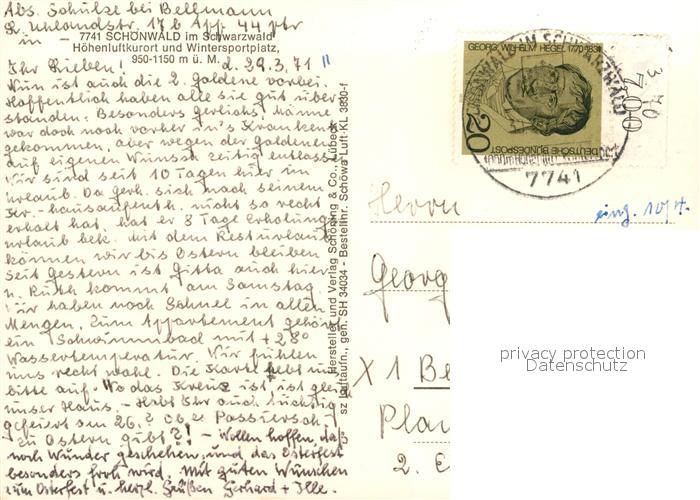 Abs. Schulze bei Bellmann
L. Uhlandstr. 17 b App. 44 ptr
in - 7741 SCHÖNWALD im Schwarzwald
Höhenluftkurort und Wintersportplatz,
950-1150 m ü. M.
Ihr Lieben! d. 29.3.71
Nun ist auch die 2. goldene vorbei.
Hoffentlich haben alle sie gut über-
standen. Besonders Gerlichs, känne
war doch noch vorher in's Krankenh
gekommen, aber wegen der Goldenen
auf eigenen Wunsch zeitig entlass
Wir sind seit 10 Tagen hier in
Urlaub. Da Gerh. sich nach seinem
Kr.-hausaufenth. nicht so recht
erholt hat, hat er 8 Tage Erholungs
urlaub bek. Mit dem Resturlaub
können wir bis Ostern bleiben
Seit gestern ist Gitta auch hier
u. Ruth kommt am Samstag.
Wir haben noch Schnee in allen
Mengen. Zum Appartement gehört
ein Schwimmbad mit + 28°
Wassertemperatur. Wir fühlen
uns recht wohl. Die Karte hebt uns
bitte auf. Wo das Kreuz ist, ist gleich
unser Haus. - Habt Ihr auch tüchtig
gefeiert am 26.? Ob es Passiersch
zu Ostern gibt?! - Wollen hoffen, daß
noch Wunder geschehen, und das Osterfest
besonders froh wird. Mit guten Wünschen
zum Osterfest u. herzl. Grüßen Gerhard + Ilse.
Hersteller und Verlag Schöning & Co., Lübeck
sz Luftaufn., gen. SH 34034 - Bestellnr. Schöwa Luft KL 3830-f
GEORG WILHELM HEGEL 1770-1831
DEUTSCHE BUNDESPOST
20
SCHÖNWALD IM SCHWARZWALD
7741
3.40
7,00
Herrn
eing. 10/4.
Georg
X 1 Be
Plau
2. E
privacy protection
Datenschutz